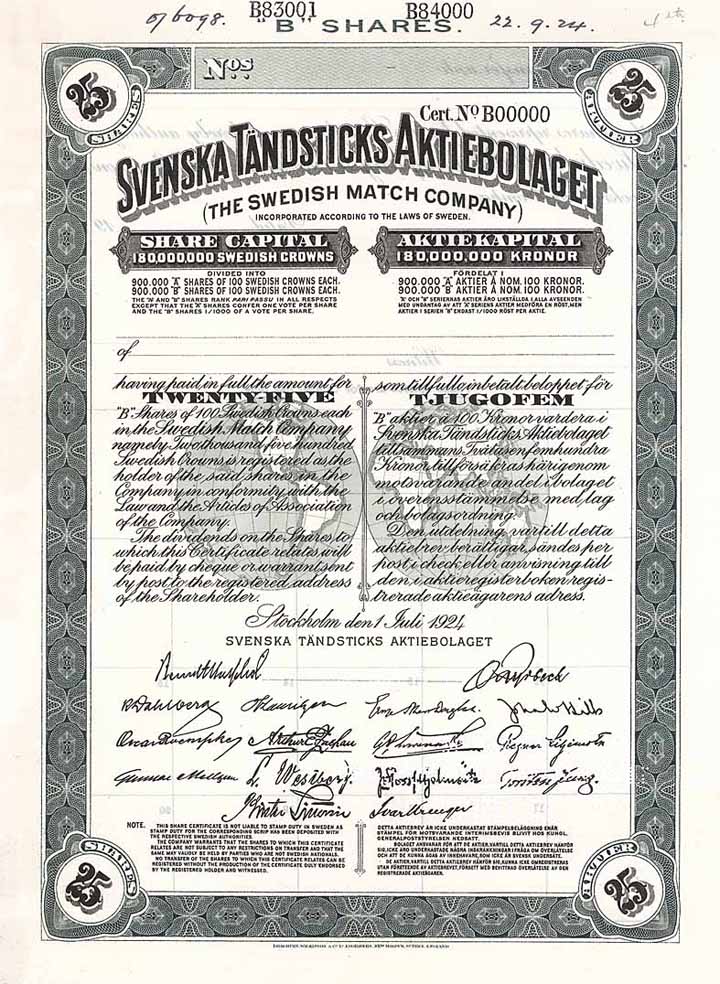 B83001 B84000
"B" SHARES.
22.9.24.
Nos
25 SHARES
25 AKTIER
Cert. No B00000
SVENSKA TÄNDSTICKS AKTIEBOLAGET
(THE SWEDISH MATCH COMPANY)
INCORPORATED ACCORDING TO THE LAWS OF SWEDEN.
SHARE CAPITAL
180,000,000 SWEDISH CROWNS
DIVIDED INTO
900.000 "A" SHARES OF 100 SWEDISH CROWNS EACH.
900.000 "B" SHARES OF 100 SWEDISH CROWNS EACH.
THE "A" AND "B" SHARES RANK PARI PASSU IN ALL RESPECTS
EXCEPT THAT THE "A" SHARES CONFER ONE VOTE PER SHARE
AND THE "B" SHARES 1/1000 OF A VOTE PER SHARE.
AKTIEKAPITAL
180,000,000 KRONOR
FÖRDELAT I
900.000 "A" AKTIER Å NOM. 100 KRONOR.
900.000 "B" AKTIER Å NOM. 100 KRONOR.
"A" OCH "B" SERIERNAS AKTIER ÄRO LIKSTÄLLDA I ALLA AVSEENDEN
MED UNDANTAG AV ATT "A" SERIENS AKTIER MEDFÖRA EN RÖST, MEN
AKTIER I SERIEN "B" ENDAST 1/1000 RÖST PER AKTIE.
of
having paid in full the amount for
TWENTY-FIVE
"B" Shares of 100 Swedish Crowns each
in the Swedish Match Company
namely Two thousand five hundred
Swedish Crowns is registered as the
holder of the said shares in the
Company in conformity with the
Law and the Articles of Association
of the Company.
The dividends on the Shares, to
which this Certificate relates, will
be paid by cheque or warrant sent
by post to the registered address
of the Shareholder.
som till fullo inbetalt beloppet för
TJUGOFEM
"B" aktier à 100 Kronor vardera i
Svenska Tändsticks Aktiebolaget
tillsammans Tvåtusenfemhundra
Kronor, tillförsäkras härigenom
motsvarande andel i bolaget
i överensstämmelse med lag
och bolagsordning.
Den utdelning, vartill detta
aktiebrev berättigar, sändes per
post i check eller anvisning till
den i aktieregisterboken regis-
trerade aktieägarens adress.
Stockholm den 1 Juli 1924
SVENSKA TÄNDSTICKS AKTIEBOLAGET
R Dahlberg
Gunnar
L. Westberg.
Ivar Kreuger
NOTE. THIS SHARE CERTIFICATE IS NOT LIABLE TO STAMP DUTY IN SWEDEN AS
STAMP DUTY FOR THE CORRESPONDING SCRIP HAS BEEN DEPOSITED WITH
THE RESPECTIVE SWEDISH AUTHORITIES.
THE COMPANY WARRANTS THAT THE SHARES TO WHICH THIS CERTIFICATE
RELATES ARE NOT SUBJECT TO ANY RESTRICTIONS ON TRANSFER AND THAT THE
SAME MAY VALIDLY BE HELD BY PARTIES WHO ARE NOT SWEDISH NATIONALS.
NO TRANSFER OF THE SHARES TO WHICH THIS CERTIFICATE RELATES CAN BE
REGISTERED WITHOUT THE PRODUCTION OF THE CERTIFICATE DULY ENDORSED
BY THE REGISTERED HOLDER AND WITNESSED.
DETTA AKTIEBREV ÄR ICKE UNDERKASTAT STÄMPELBELÄGGNING ENÄR
STÄMPEL FÖR MOTSVARANDE INTERIMSBEVIS BLIVIT HOS KUNGL.
GENERALPOSTSTYRELSEN NEDSATT.
BOLAGET ANSVARAR FÖR ATT DE AKTIER, VARTILL DETTA AKTIEBREV HÄNFÖR
SIG, ICKE ÄRO UNDERKASTADE NÅGRA INSKRÄNKNINGAR I FRÅGA OM ÖVERLÅTELSE
OCH ATT DE KUNNA ÄGAS AV INNEHAVARE, SOM ICKE ÄR SVENSK UNDERSÅTE.
DE AKTIER, VARTILL DETTA AKTIEBREV HÄNFÖR SIG, KUNNA ICKE OMREGISTRERAS
UTAN FÖRETEENDE AV AKTIEBREVET, FÖRSETT MED BEVITTNAD ÖVERLÅTELSE AV DEN
REGISTRERADE AKTIEÄGAREN.
SHARES 25
AKTIER 25